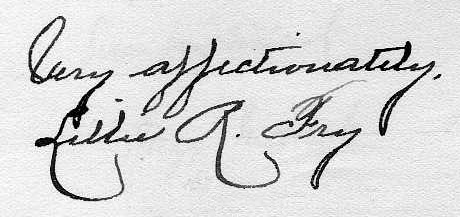 Very affectionately,
Lillie R. Fry